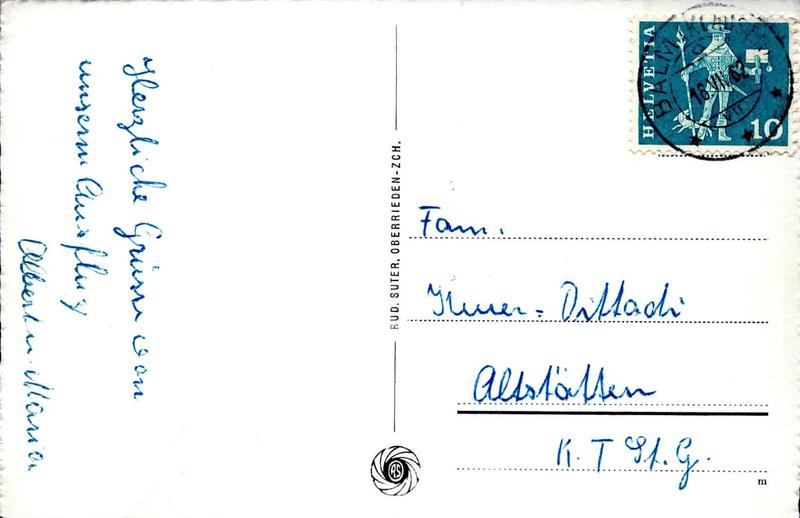 Herzliche Grüsse von
unserm Ausflug
Albert u. Maria
RUD. SUTER, OBERRIEDEN-ZCH.
HELVETIA
10
BALM
18.VII.62
VII
Fam.
Dittadi
Altstätten
K. T St. G.
RS
m